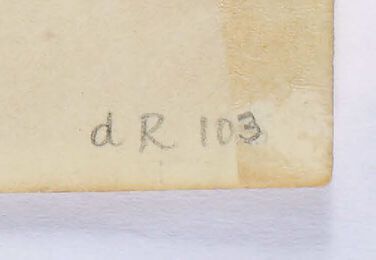 d R 103